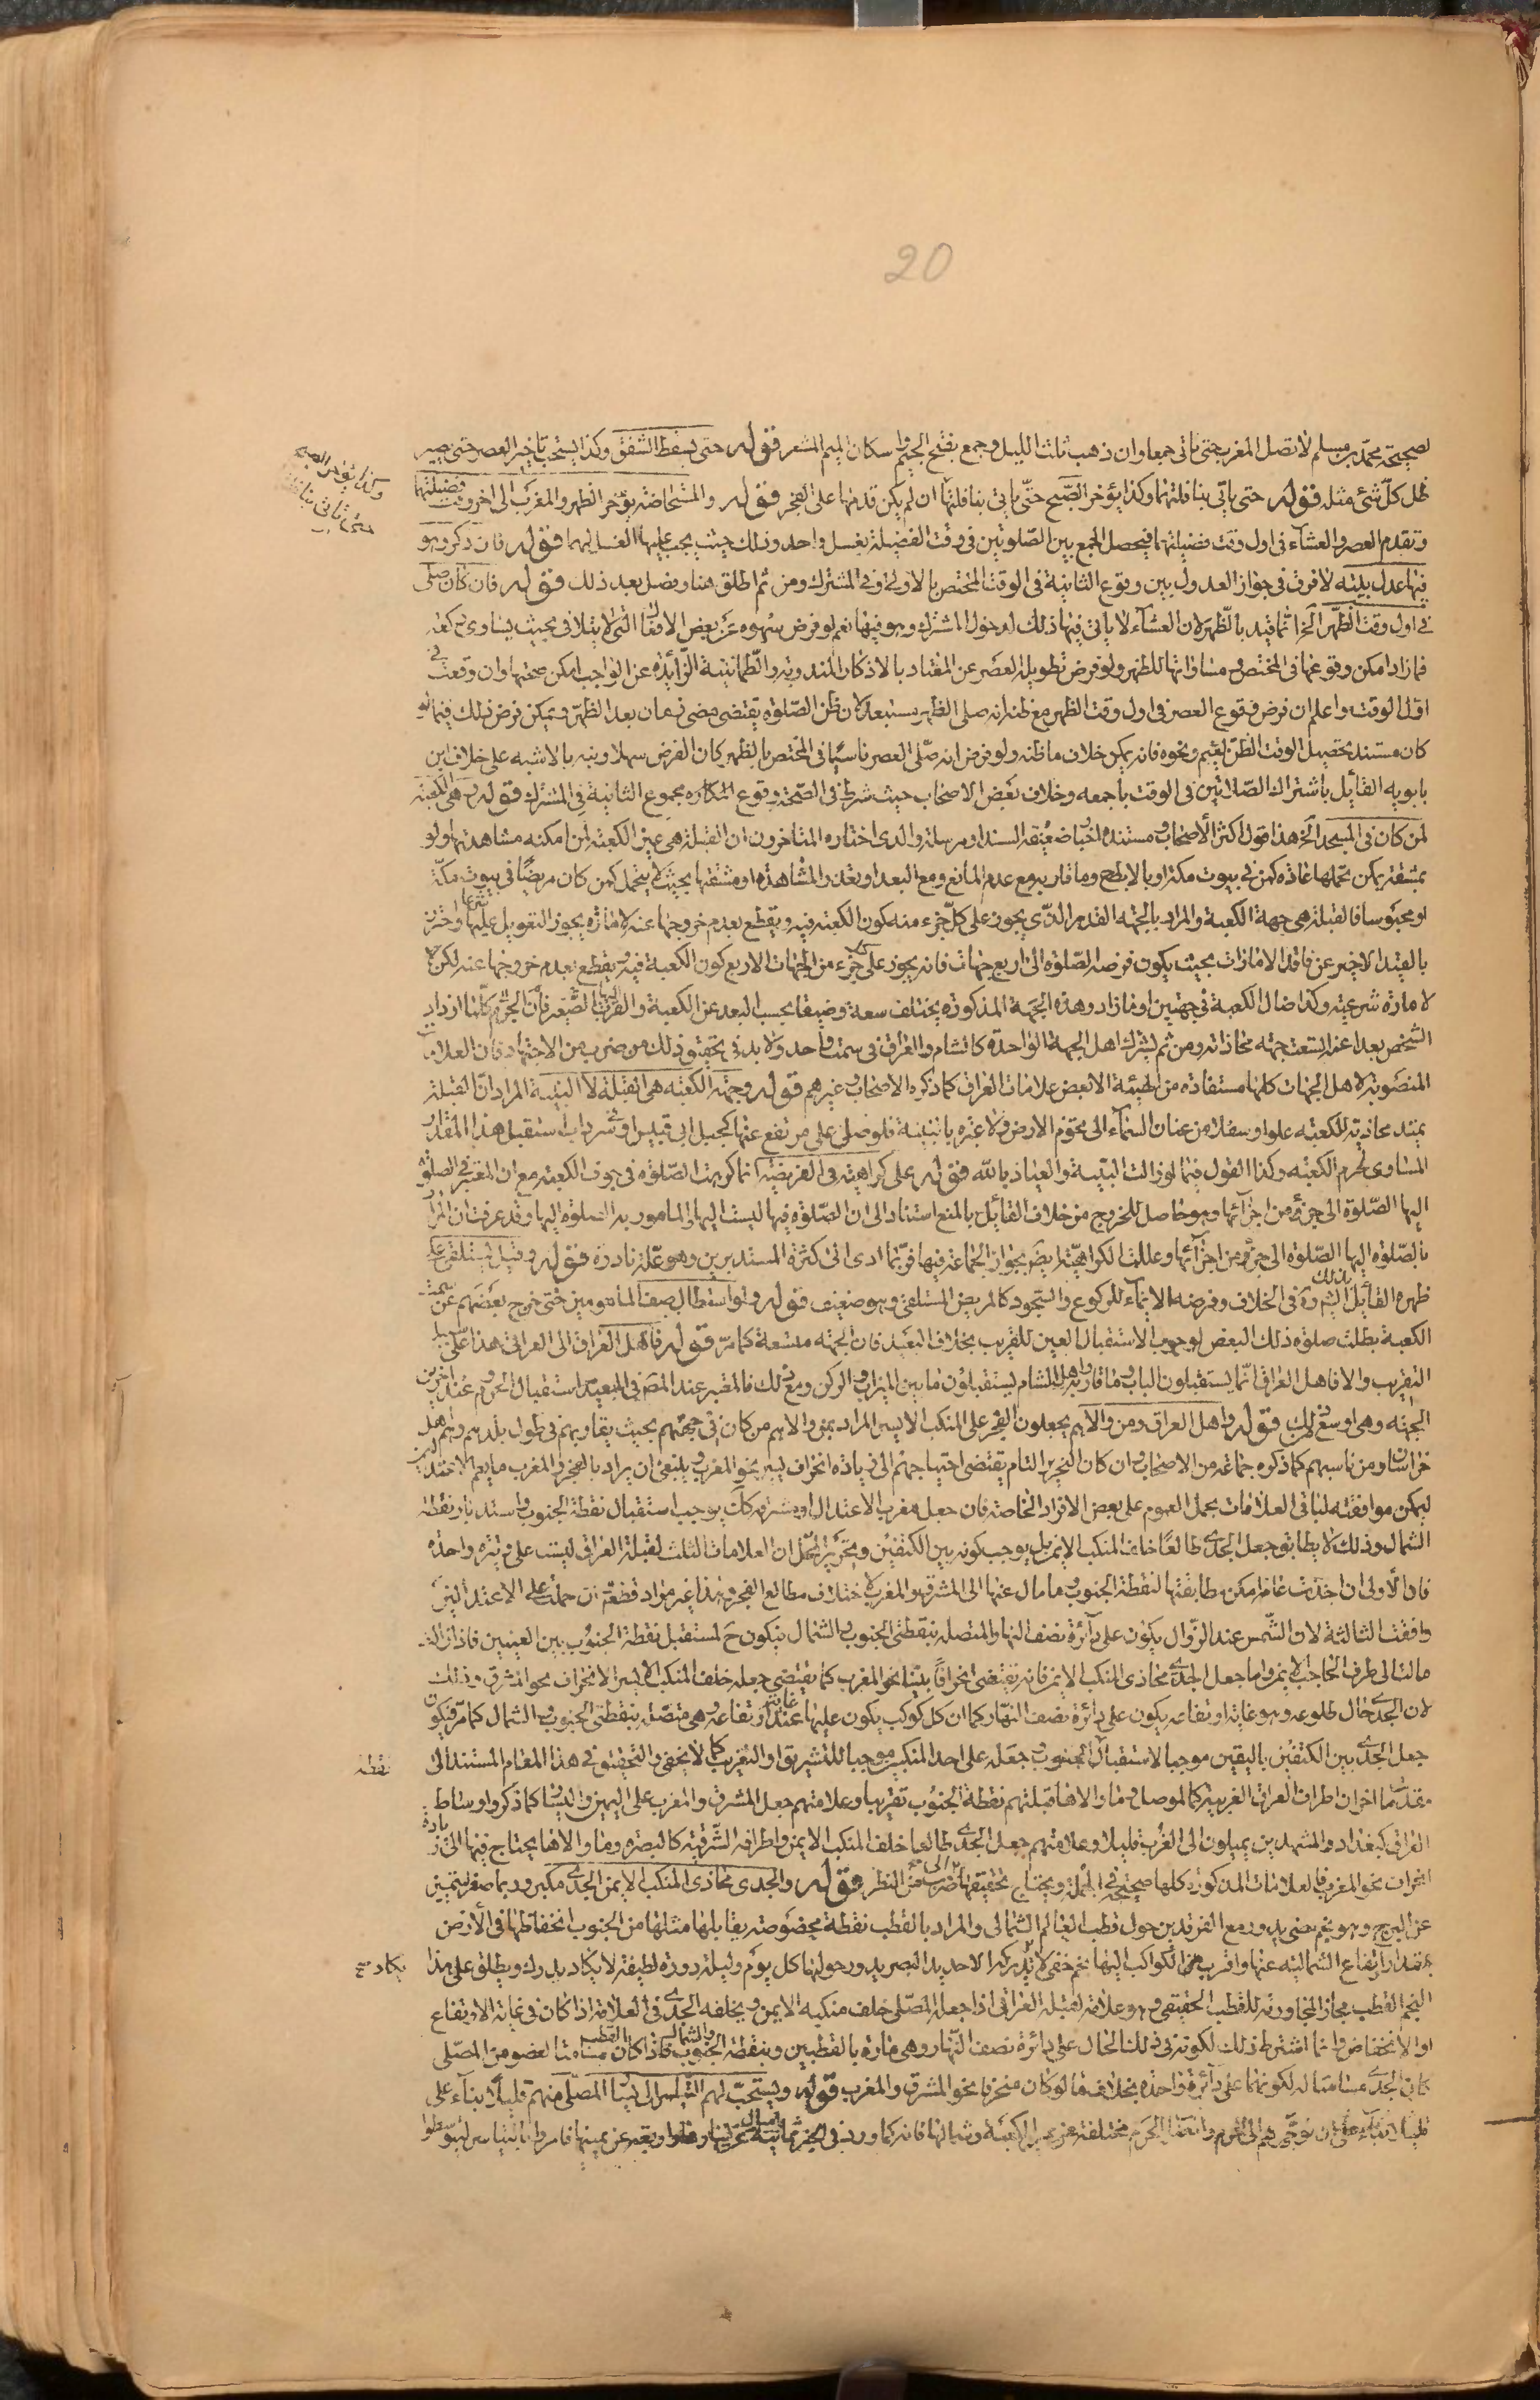 20
لصحيحة محمد بن مسلم لا تصل المغرب حتى تاتى جمعا وان ذهب ثلث الليل وجمع بفتح الجيم واسكان الميم المشعر قوله حتى يسقط الشفق وكذا يستحب تاخير العصر حتى يصير
ظل كل شئ مثله قوله حتى ياتى بنافلتها وكذا يؤخر الصبح حتى ياتى بنافلتها ان لم يكن قدمها على الفجر قوله والمستحاضة يؤخر الظهر والمغرب الى اخر وقت فضيلتها
وتقدم العصر والعشاء فى اول وقت فضيلتهما فيحصل الجمع بين الصلوتين فى وقت الفضيلة بغسل واحد وذلك حيث يجب عليها الغسل لهما قوله فان ذكر وهو
فيها عدل بنيته لا فرق فى جواز العدول بين وقوع الثانية فى الوقت المختص بالاولى وفى المشترك ومن ثم اطلق هنا وفصل بعد ذلك قوله فان كان صلى
فى اول وقت الظهر الخ انما قيد بالظهر لان العشاء لا ياتى فيها ذلك لدخول المشترك وهو فيها نعم لو فرض سهوه عن بعض الافعال التى لا يتلافى بحيث يساوى
فما زاد امكن وقوعها فى المختص ومساواتها للظهر ولو فرض تطويله العصر عن المعتاد بالاذكار المندوبة والطمانينة الزائدة عن الواجب امكن صحتها وان وقعت فى
اول الوقت واعلم ان فرض وقوع العصر فى اول وقت الظهر مع ظنه انه صلى الظهر مستبعد لان ظن الصلوة يقتضى مضى زمان بعد الظهر ويمكن فرض ذلك فيما لو
كان مستند تحصيل الوقت الظن لغيم ونحوه فانه يمكن خلاف ما ظنه ولو فرض انه صلى العصر ناسيا فى المختص بالظهر كان الفرض سهلا ونبه بالاشبه على خلاف ابن
بابويه القائل باشتراك الصلاتين فى الوقت باجمعه وخلاف بعض الاصحاب حيث شرط فى الصحة وقوع مجموع الثانية فى المشترك قوله وهى الكعبة
لمن كان فى المسجد الخ هذا قول اكثر الاصحاب ومستنده اخبار ضعيفة السند او مرسلة والذى اختاره المتاخرون ان القبلة هى عين الكعبة لمن امكنه مشاهدتها ولو
بمشقة يمكن تحملها عادة كمن فى بيوت مكة او بالابطح وما قاربه مع عدم المانع ومع البعد او تعذر المشاهدة او مشقتها بحيث لا يتحمل كمن كان مريضا فى بيوت مكة
او محبوسا فالقبلة هى جهة الكعبة والمراد بالجهة القدر الذى يجوز على كل جزء منه كون الكعبة فيه ويقطع بعدم خروجها عنه لامارة يجوز التعويل عليها شرعا واحترز
بالقيد الاخير عن فاقد الامارات بحيث يكون فرضه الصلوة الى اربع جهات فانه يجوز على كل جزء من الجهات الاربع كون الكعبة فيه ويقطع بعدم خروجها عنه لكن لا
لامارة شرعية وكذا ضال الكعبة فى جهتين او ما زاد وهذه الجهة المذكورة يختلف سعة وضيقا بحسب البعد عن الكعبة والقرب اليها فان الجرم الصغير كلما ازداد
الشخص بعدا عنه اتسعت جهته محاذاته ومن ثم يشترك اهل الجهة الواحدة كالشام والعراق فى سمت واحد ولا بد فى تحقيق ذلك من ضرب من الاجتهاد فان العلامات
المنصوبة لاهل الجهات كلها مستفادة من الهيئة الا بعض علامات العراق كما ذكره الاصحاب وغيرهم قوله وجهة الكعبة هى القبلة لا البنية المراد ان القبلة
يمتد محاذية للكعبة علوا وسفلا من عنان السماء الى تخوم الارض ولا عبرة بالبنية فلو صلى على مرتفع عنها كجبل ابى قبيس او سرداب استقبل هذا المقدار
المساوى لجرم الكعبة وكذا القول فيما لو زالت البنية والعياذ بالله قوله على كراهية فى الفريضة انما كرهت الصلوة فى جوف الكعبة مع ان المعتبر فى الصلوة
اليها الصلوة الى جزء من اجزائها وهو حاصل للخروج من خلاف القائل بالمنع استنادا الى ان الصلوة فيها ليست اليها المامور به الصلوة اليها وقد عرفت ان المراد
بالصلوة اليها الصلوة الى جزء من اجزائها وعللت الكراهية ايض بجواز الجماعة فيها فربما ادى الى كثرة المستدبرين وهو علة نادرة قوله وقيل يستلقى على
ظهره القائل بذلك الشيخ ره فى الخلاف وفرضه الايماء للركوع والسجود كالمريض المستلقى وهو ضعيف قوله ولو استطال صف المامومين حتى خرج بعضهم عن سمت
الكعبة بطلت صلوة ذلك البعض لوجوب الاستقبال العين للقريب بخلاف البعيد فان الجهة متسعة كما مر قوله فاهل العراق الى العراقى هذا على سبيل
التقريب والا فاهل العراق انما يستقبلون الباب وما قاربه واهل الشام يستقبلون ما بين الميزاب والركن ومع ذلك فالمعتبر عند المص فى البعيد استقبال الحرم وعند اخرين
الجهة وهى اوسع من ذلك قوله واهل العراق ومن والاهم يجعلون الفجر على المنكب الايسر المراد بمن والاهم من كان فى جهتهم بحيث يقاربهم فى طول بلدهم وهم اهل
خراسان ومن ناسبهم كما ذكره جماعة من الاصحاب وان كان التحرير التام يقتضى احتياجهم الى زيادة انحراف يسير نحو المغرب وينبغى ان يراد بالفجر والمغرب ما يعم الاعتدالين
ليمكن موافقته لباقى العلامات بحمل العموم على بعض الافراد الخاصة فان جعل مغرب الاعتدال او مشرقه كك يوجب استقبال نقطة الجنوب واستدبار نقطة
الشمال وذلك لا يطابق جعل الجدى طالعا خلف المنكب الايمن بل يوجب كونه بين الكتفين وتحرير المحل ان العلامات الثلث لقبلة العراقى ليست على وتيرة واحدة
فان الاولى ان اخذت عامة امكن مطابقتها لنقطة الجنوب وما مال عنها الى المشرق والمغرب لاختلاف مطالع الفجر وهذا غير مراد قطعا وان حملت على الاعتدالين
وافقت الثالثة لان الشمس عند الزوال يكون على دائرة نصف النهار المتصلة بنقطتى الجنوب والشمال فيكون ح لمستقبل نقطة الجنوب بين العينين فاذا زالت
مالت الى طرف الحاجب الايمن واما جعل الجدى محاذى المنكب الايمن فانه يقتضى انحرافا بينا نحو المغرب كما يقتضى جعله خلف المنكب الايسر الانحراف نحو المشرق وذلك
لان الجدى حال طلوعه وهو غاية ارتفاعه يكون على دائرة نصف النهار كما ان كل كوكب يكون عليها عند غاية ارتفاعه وهى متصلة بنقطتى الجنوب والشمال كما مر فيكون
جعل الجدى بين الكتفين باليقين موجبا لاستقبال نقطة الجنوب وجعله على احد المنكبين موجبا للتشريق او التغريب كما لا يخفى والتحقيق فى هذا المقام المستند الى
مقدمات اخر ان اطراف العراق الغربية كالموصل وما والاها قبلتهم نقطة الجنوب تقريبا وعلامتهم جعل المشرق والمغرب على اليمين واليسار كما ذكر واوساط
العراق كبغداد والمشهدين يميلون الى الغرب قليلا وعلامتهم جعل الجدى طالعا خلف المنكب الايمن واطرافه الشرقية كالبصرة وما والاها يحتاج فيها الى زيادة
انحراف نحو المغرب فالعلامات المذكورة كلها صحيحة فى الجملة ويحتاج تحقيقها الى ضرب من النظر قوله والجدى محاذى المنكب الايمن الجدى مكبر وربما صغر ليتميز
عن البرج وهو نجم مضئ يدور مع الفرقدين حول قطب العالم الشمالى والمراد بالقطب نقطة مخصوصة يقابلها مثلها من الجنوب انخفاضها فى الارض
بمقدار ارتفاع الشمالية عنها واقرب الكواكب اليها نجم خفى لا يدركه الا حديد البصر يدور حولها كل يوم وليلة دورة لطيفة لا يكاد يدرك ويطلق على هذا
النجم القطب مجازا لمجاورته للقطب الحقيقى وهو علامة لقبلة العراقى اذا جعله المصلى خلف منكبه الايمن ويخلفه الجدى فى العلامة اذا كان فى غاية الارتفاع
او الانخفاض وانما اشترط ذلك لكونه فى ذلك الحال على دائرة نصف النهار وهى مارة بالقطبين وبنقطة الجنوب والشمال فاذا كان القطب مسامتا لعضو من المصلى
كان الجدى مسامتا له لكونهما على دائرة واحدة بخلاف ما لو كان منحرفا نحو المشرق والمغرب قوله ويستحب لهم التياسر الى يسار المصلى منهم قليلا بناء على
قليلا بناء على ان توجههم الى الحرم وانصاب الحرم مختلفة عن يمين الكعبة وشمالها فانه كما ورد فى الخبر ثمانية اميال عن يسارها واربعة عن يمينها فامروا بالتياسر ليتوسطوا
نقطة
يكاد صح